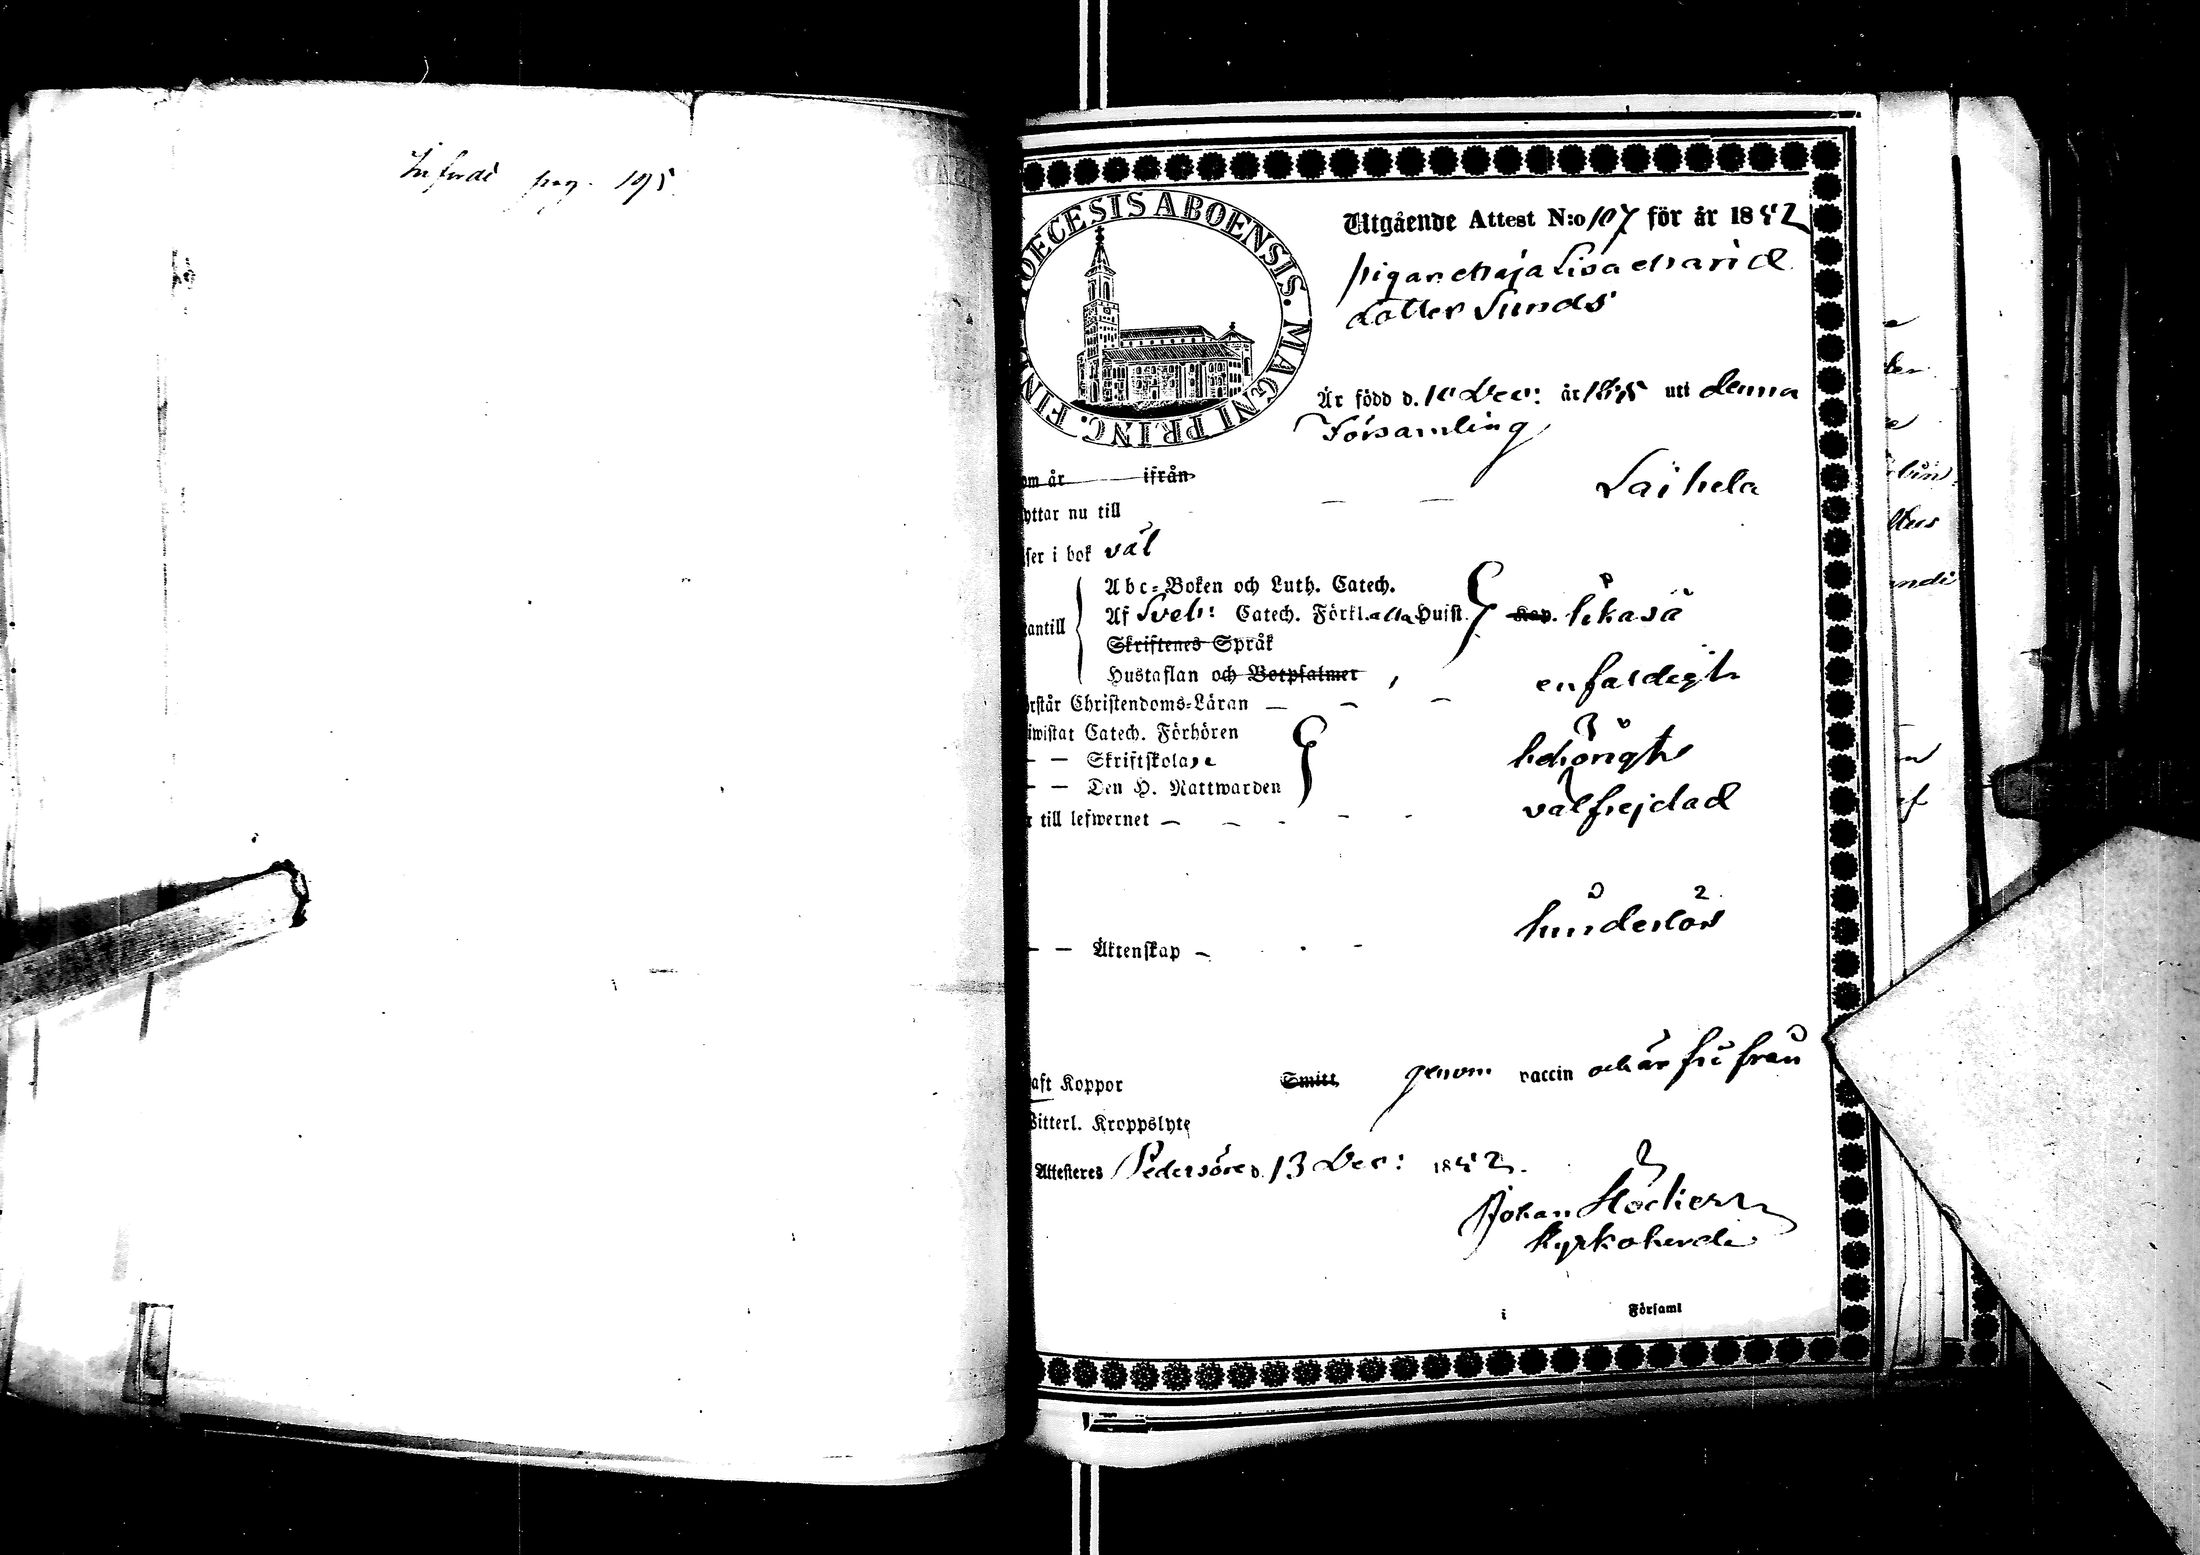 Införd pag. 195
DIOECESIS ABOENSIS. MAGNI PRINC. FIN
Utgående Attest N:o 107 för år 1852
pigan Maja Lisa Mariæ
dotter Sunds
Är född d. 10 Dec: år uti denna
Församling
om år ifrån
yttar nu till Laihela
ser i bok väl
Abc-Boken och Luth. Catech.
antill Af Sveb: Catech. Förkl. alla Huist. Kap. likaså
Skriftenes Språk
Hustaflan och Botpsalmer
rstår Christendoms-Läran enfaldigt
iwistat Catech. Förhören
— — Skriftskolare behörigt
— — Den H. Nattwarden
r till lefwernet välfrejdad
— — Äktenskap hinderlös
aft Koppor Smitt, genom vaccin och är fri från
Witterl. Kroppslyte
Attesteres Pedersöre d. 13 Dec: 1852.
Johan
Kyrkoherde
i Församl